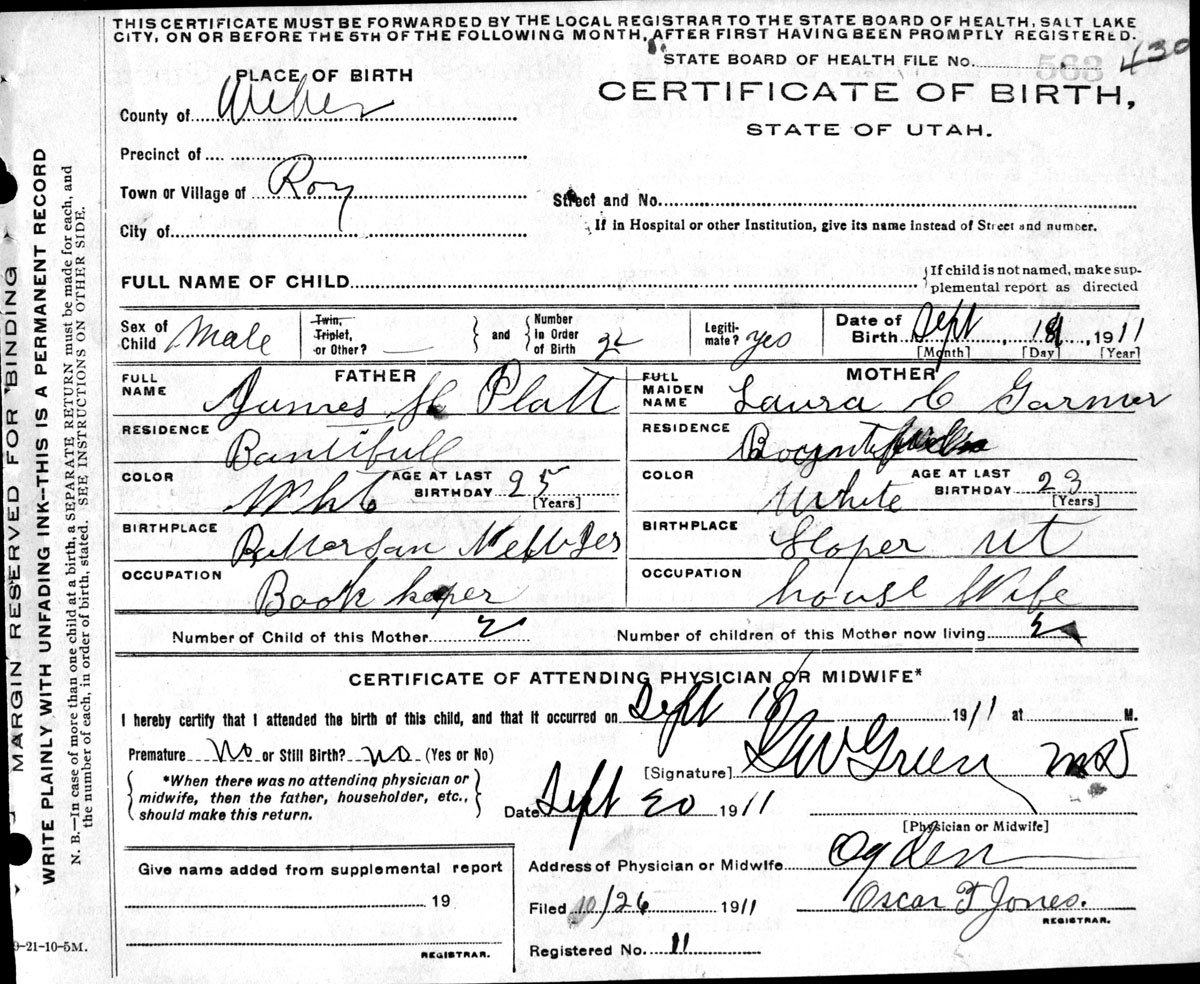 THIS CERTIFICATE MUST BE FORWARDED BY THE LOCAL REGISTRAR TO THE STATE BOARD OF HEALTH, SALT LAKE
CITY, ON OR BEFORE THE 5TH OF THE FOLLOWING MONTH, AFTER FIRST HAVING BEEN PROMPTLY REGISTERED.
STATE BOARD OF HEALTH FILE No. 430
PLACE OF BIRTH
CERTIFICATE OF BIRTH,
STATE OF UTAH.
County of Weber
Precinct of
Town or Village of Roy
Street and No.
City of
If in Hospital or other Institution, give its name instead of Street and number.
FULL NAME OF CHILD
{If child is not named, make sup-
plemental report as directed
Sex of Child Male
Twin, Triplet, or Other? —
and
Number in Order of Birth 2
Legiti- mate? yes
Date of Birth Sept, 18, 1911
[Month] [Day] [Year]
FATHER
FULL NAME James H Platt
RESIDENCE Bantifull
COLOR Wht
AGE AT LAST BIRTHDAY 25
[Years]
BIRTHPLACE
OCCUPATION Book keper
MOTHER
FULL MAIDEN NAME Laura C Garner
RESIDENCE
COLOR White
AGE AT LAST BIRTHDAY 23
[Years]
BIRTHPLACE Sloper Ut
OCCUPATION house Wife
Number of Child of this Mother 2
Number of children of this Mother now living 2
CERTIFICATE OF ATTENDING PHYSICIAN OR MIDWIFE*
I hereby certify that I attended the birth of this child, and that it occurred on Sept 18 1911 at M.
Premature No or Still Birth? No (Yes or No)
[Signature] GW Green MD
{*When there was no attending physician or
midwife, then the father, householder, etc.,
should make this return.}
Date Sept 20 1911
[Physician or Midwife]
Address of Physician or Midwife Ogden
Give name added from supplemental report
19
REGISTRAR.
Filed 10/26 1911
Oscar F Jones.
REGISTRAR.
Registered No. 11
9-21-10-5M.
MARGIN RESERVED FOR BINDING
WRITE PLAINLY WITH UNFADING INK—THIS IS A PERMANENT RECORD
N. B.—In case of more than one child at a birth, a SEPARATE RETURN must be made for each, and
the number of each, in order of birth, stated. SEE INSTRUCTIONS ON OTHER SIDE.